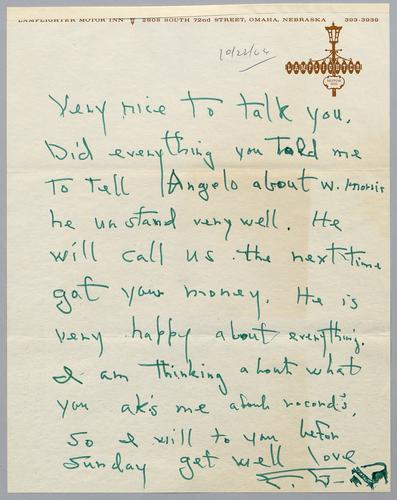 LAMPLIGHTER MOTOR INN 2808 SOUTH 72nd STREET, OMAHA, NEBRASKA 393-3939
10/22/64
LAMPLIGHTER
Very nice to talk you.
Did everything you told me
to tell Angelo about W. Morris
he unstand very well. He
will call us the next time
got your money. He is
very happy about everything.
I am thinking about what
you ak's me about record's,
so I will to you befor
Sunday get well love